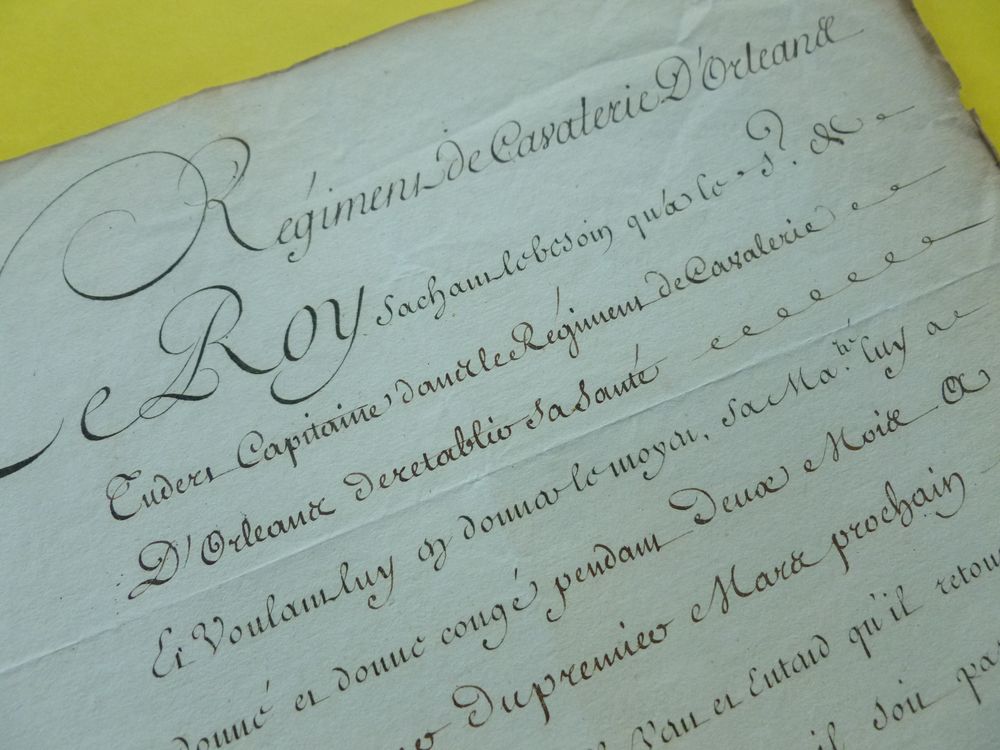 Régiment de Cavalerie D'Orleans
Le ROY Sachant le besoin qu'a le S.r de
Tudert Capitaine dans le Régiment de Cavalerie
D'Orleans de retablir sa Santé
Et Voulant luy en donner le moyen, Sa Ma.té luy a
donné et donne congé pendant Deux Mois a
Du premier Mars prochain
L'an et Entend qu'il retour
il soit pa